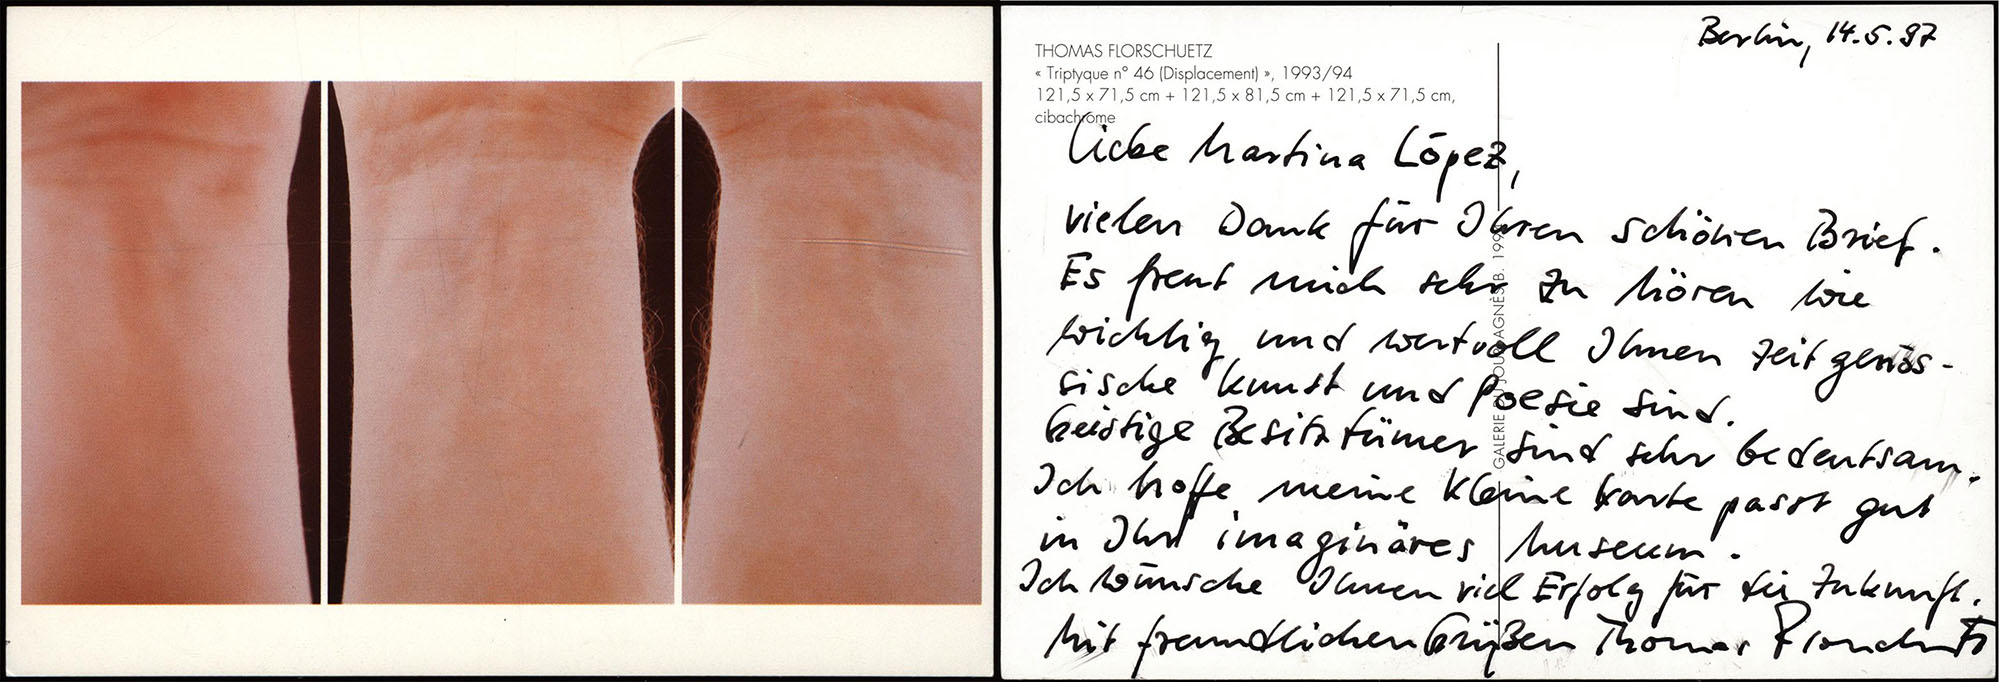 Berlin, 14.5.97
THOMAS FLORSCHUETZ
« Triptyque n° 46 (Displacement) », 1993/94
121,5 x 71,5 cm + 121,5 x 81,5 cm + 121,5 x 71,5 cm,
cibachrome
Liebe Martina López,
vielen Dank für Ihren schönen Brief.
Es freut mich sehr zu hören wie
wichtig und wertvoll Ihnen zeitgenös-
sische Kunst und Poesie sind.
Geistige Besitztümer sind sehr bedeutsam.
Ich hoffe meine kleine Karte passt gut
in Ihr imaginäres Museum.
Ich wünsche Ihnen viel Erfolg für die Zukunft.
Mit freundlichen Grüßen Thomas Florschuetz
GALERIE DU JOUR AGNÈS B.